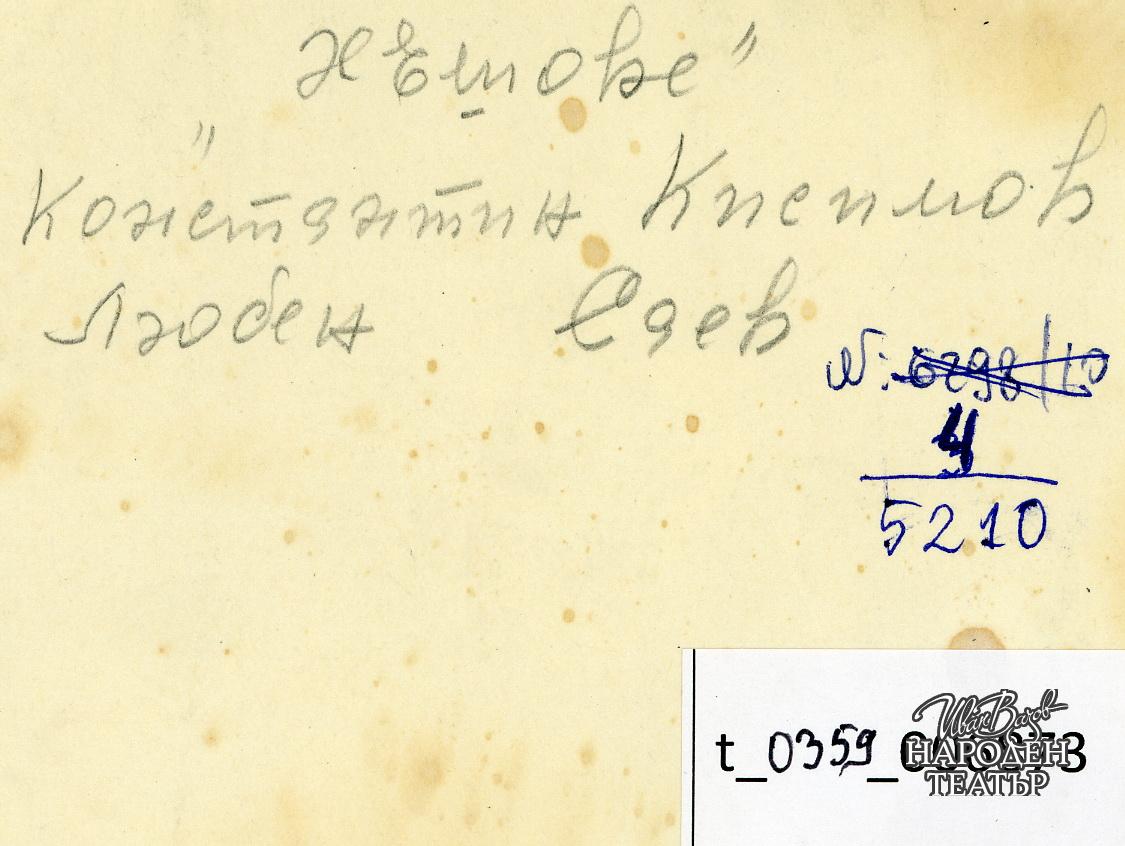 „Хъшове"
Константин Кисимов
Любен Саев
№: 6298/10
4
5210
Иван Вазов
НАРОДЕН
ТЕАТЪР